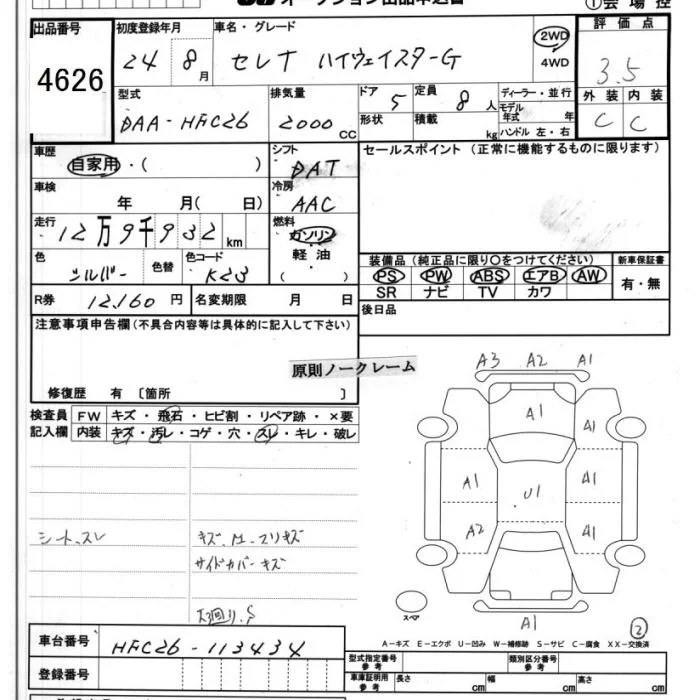 オークション出品申込書 ①会場控
出品番号 4626
初度登録年月 24 8月
車名・グレード セレナ ハイウェイスターG
2WD
4WD
評価点 3.5
外装 C 内装 C
型式 DAA-HFC26
排気量 2000 CC
ドア 5 定員 8人
形状 積載 kg
ディーラー・並行
モデル年式 年
ハンドル 左・右
車歴 自家用・( )
シフト DAT
セールスポイント (正常に機能するものに限ります)
車検 年 月( 日)
冷房 AAC
走行 12万9千932km
燃料 ガソリン
軽油
( )
色 シルバー 色替 色コード K23
装備品 (純正品に限り○をつけてください)
PS PW ABS エアB AW
SR ナビ TV カワ
新車保証書 有・無
R券 12,160円 名変期限 月 日
後日品
注意事項申告欄 (不具合内容等は具体的に記入して下さい)
原則ノークレーム
修復歴 有 〔箇所 〕
検査員記入欄 FW キズ・飛石・ヒビ割・リペア跡・×要
内装 キズ・汚レ・コゲ・穴・スレ・キレ・破レ
シート、スレ
サイドカバーキズ
下廻り.S
A3 A2 A1
A1 A1
A1 U1 A1
A2 A1
A1
スペア
②
A-キズ E-エクボ U-凹み W-補修跡 S-サビ C-腐食 XX-交換済
車台番号 HFC26-113434
登録番号
型式指定番号 参考 類別区分番号 参考
車庫証明用 参考 長さ cm 幅 cm 高さ cm